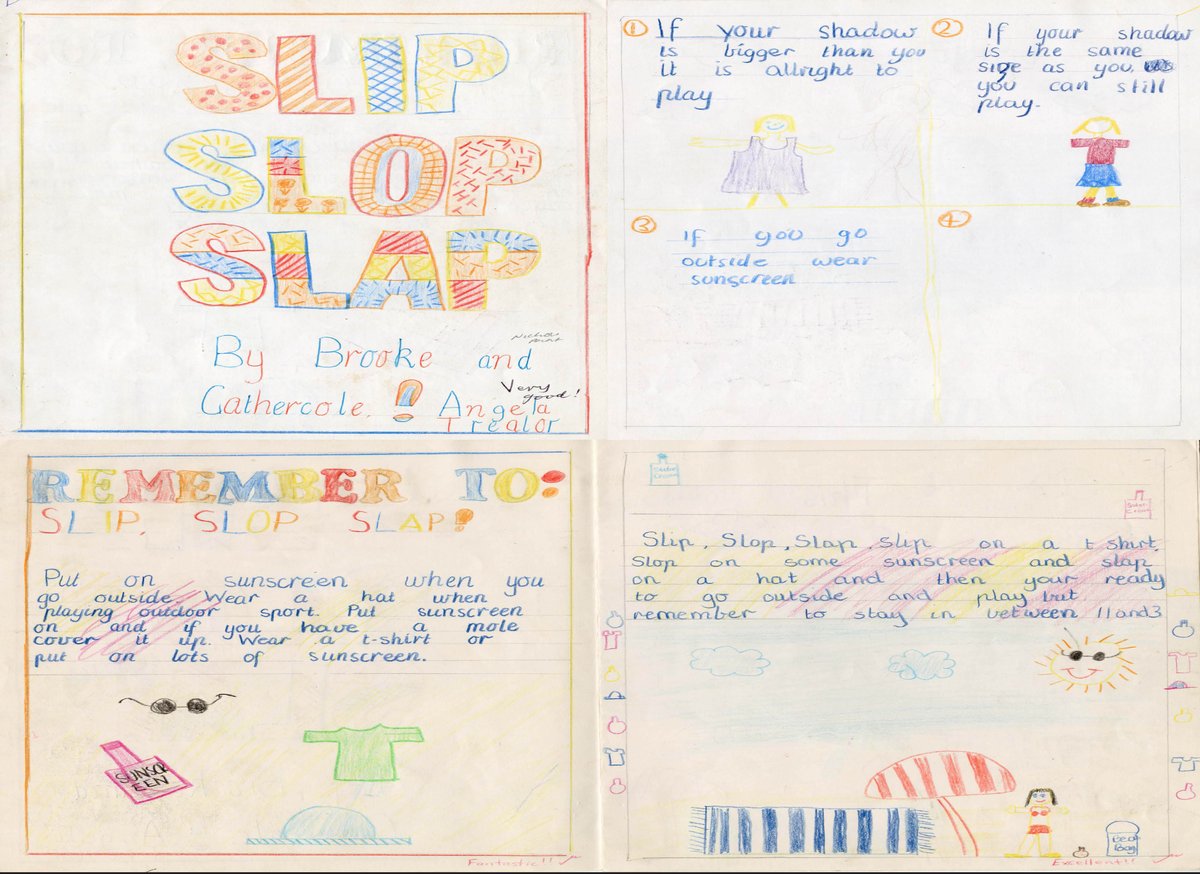 SLIP
SLOP
SLAP
By Brooke and
Gathercole. ! Angela
Very
good!
Trealor
① If your shadow
is bigger than you
it is allright to
play
② If your shadow
is the same
size as you,
you can still
play.
③ If you go
outside wear
sunscreen
④
REMEMBER TO:
SLIP, SLOP SLAP!
Put on sunscreen when you
go outside. Wear a hat when
playing outdoor sport. Put sunscreen
on and if you have a mole
cover it up. Wear a t-shirt or
put on lots of sunscreen.
SUNSCR
EEN
Fantastic!!
Slip, Slop, Slap, Slip on a t shirt,
Slop on some sunscreen and slap
on a hat and then your ready
to go outside and play but
remember to stay in between 11 and 3
Bag
Excellent!!